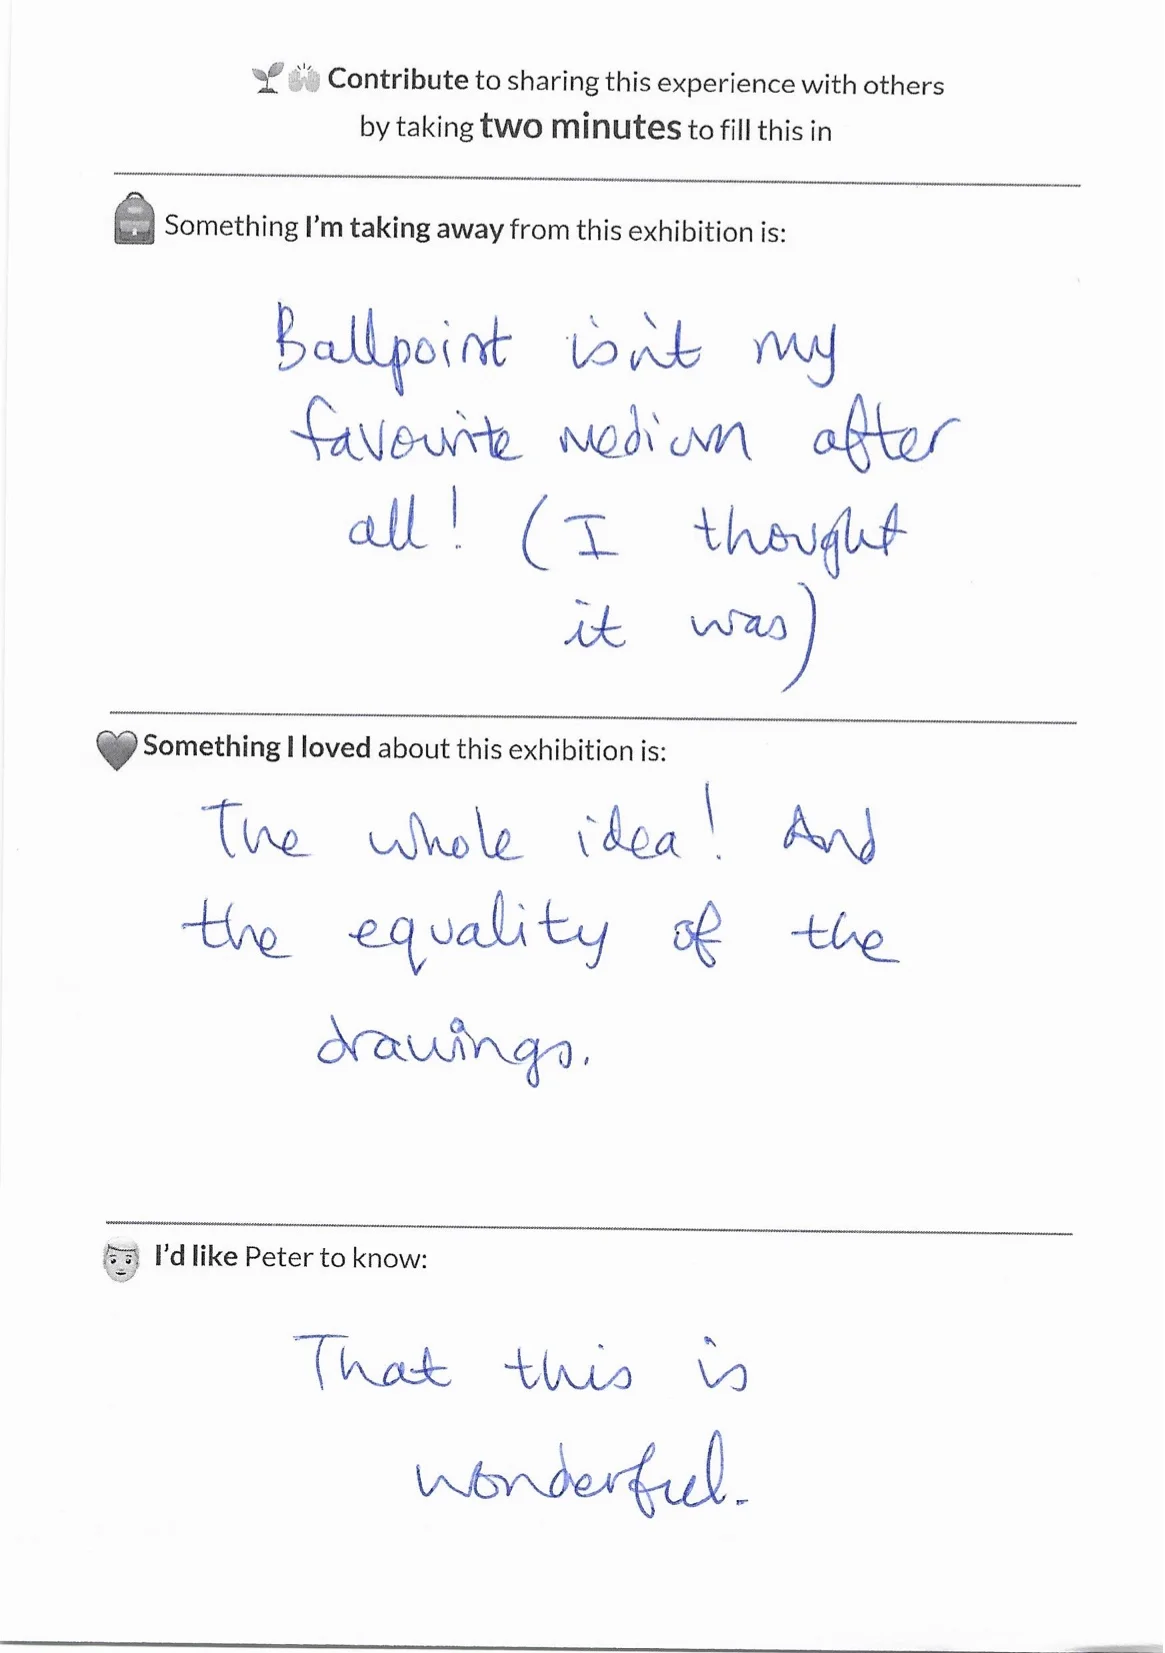 Contribute to sharing this experience with others
by taking two minutes to fill this in
Something I'm taking away from this exhibition is:
Ballpoint isn't my
favourite medium after
all! (I thought
it was)
Something I loved about this exhibition is:
The whole idea! And
the equality of the
drawings.
I'd like Peter to know:
That this is
wonderful.